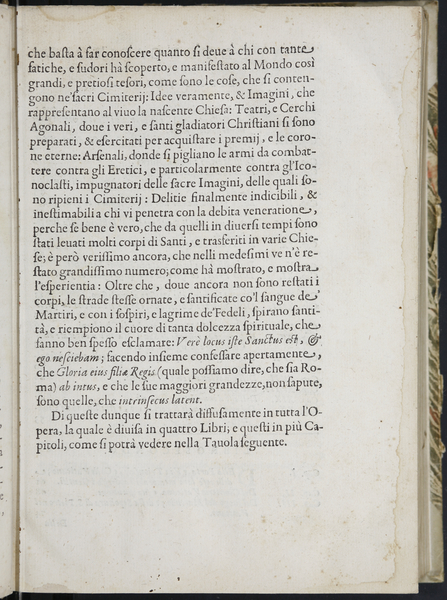 che basta à far conoscere quanto si deue à chi con tante
fatiche, e sudori hà scoperto, e manifestato al Mondo così
grandi, e pretiosi tesori, come sono le cose, che si conten-
gono ne'sacri Cimiterij: Idee veramente, & Imagini, che
rappresentano al viuo la nascente Chiesa: Teatri, e Cerchi
Agonali, doue i veri, e santi gladiatori Christiani si sono
preparati, & esercitati per acquistare i premij, e le coro-
ne eterne: Arsenali, donde si pigliano le armi da combat-
tere contra gli Eretici, e particolarmente contra gl'Ico-
noclasti, impugnatori delle sacre Imagini, delle quali so-
no ripieni i Cimiterij: Delitie finalmente indicibili, &
inestimabili a chi vi penetra con la debita veneratione,
perche se bene è vero, che da quelli in diuersi tempi sono
stati leuati molti corpi di Santi, e trasferiti in varie Chie-
se; è però verissimo ancora, che nelli medesimi ve n'è re-
stato grandissimo numero; come hà mostrato, e mostra
l'esperientia: Oltre che, doue ancora non sono restati i
corpi, le strade stesse ornate, e santificate co'l sangue de'
Martiri, e con i sospiri, e lagrime de'Fedeli, spirano santi-
tà, e riempiono il cuore di tanta dolcezza spirituale, che
fanno ben spesso esclamare: Verè locus iste Sanctus est, &
ego nesciebam; facendo insieme confessare apertamente,
che Gloria eius filiæ Regis (quale possiamo dire, che sia Ro-
ma) ab intus, e che le sue maggiori grandezze, non sapute,
sono quelle, che intrinsecus latent.
Di queste dunque si trattarà diffusamente in tutta l'O-
pera, la quale è diuisa in quattro Libri; e questi in più Ca-
pitoli, come si potrà vedere nella Tauola seguente.